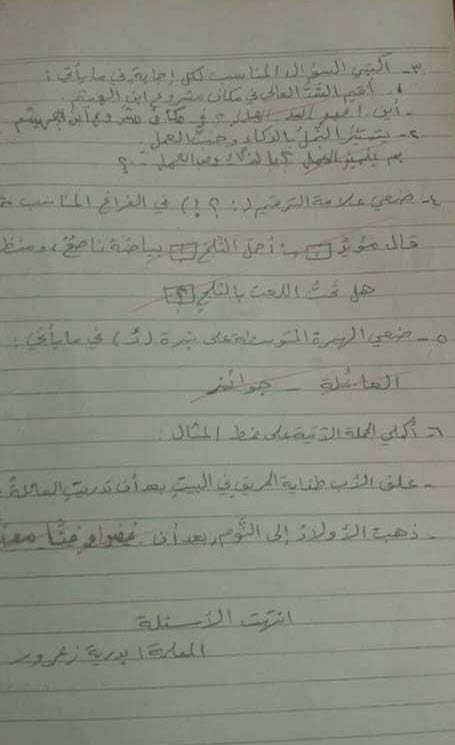 ٣- اكتبي السؤال المناسب لكل إجابة في ما يأتي :
١. أقيم السد العالي في مكان مشروع ابن الهيثم.
- أين أقيم السد العالي؟ في مكان مشروع ابن الهيثم
٢- يتميز النمل بالذكاء وحب العمل.
بم يتميز النمل؟ بالذكاء وحب العمل ؟
٤- ضعي علامة الترقيم (: ؟ !) في الفراغ المناسب
قال مؤيد : ما أجمل الثلج ! بياضه ناصع، ومنظ
هل تحب اللعب بالثلج ؟
٥- ضعي الهمزة المتوسطة على نبرة (ئـ) في ما يأتي :
العائلة - جوائز
٦- أكملي الجملة الآتية على نمط المثال :
- علق الأب طفاية الحريق في البيت بعد أن تدربت العائلة
- ذهبت الأولاد إلى النوم بعد أن قضوا وقتًا
انتهت الأسئلة
المعلمة : بدرية زعرور